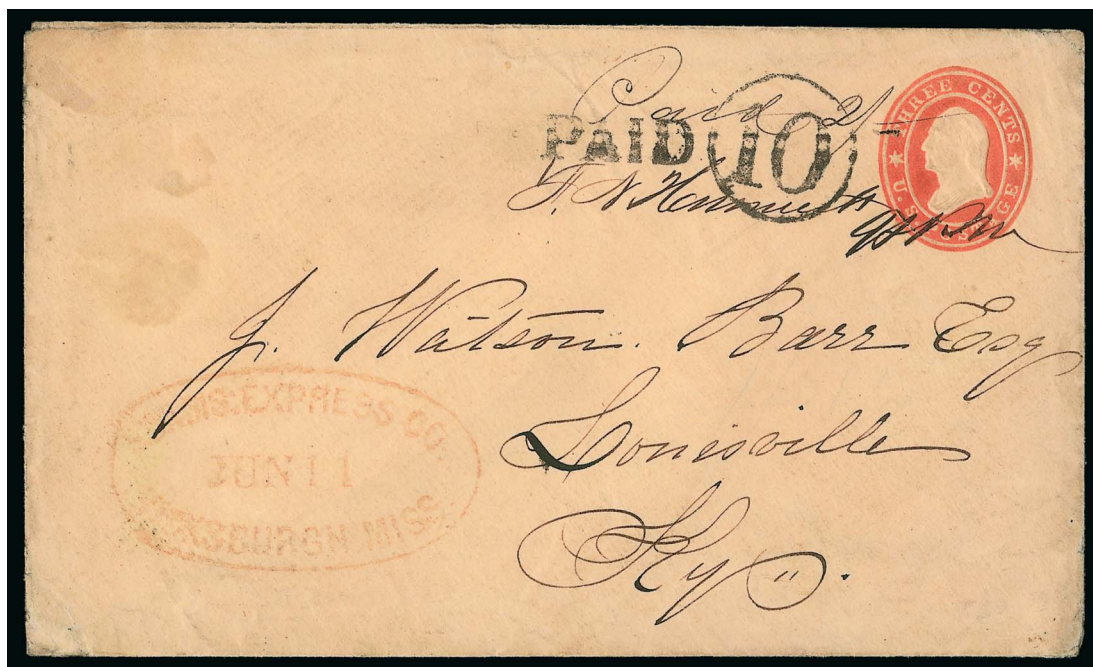 Paid 2/-
PAID 10
THREE CENTS
U.S. POSTAGE
J. Watson. Barr Esq
Louisville
Ky.
ADAMS. EXPRESS CO.
JUN 11
VICKSBURGH MISS